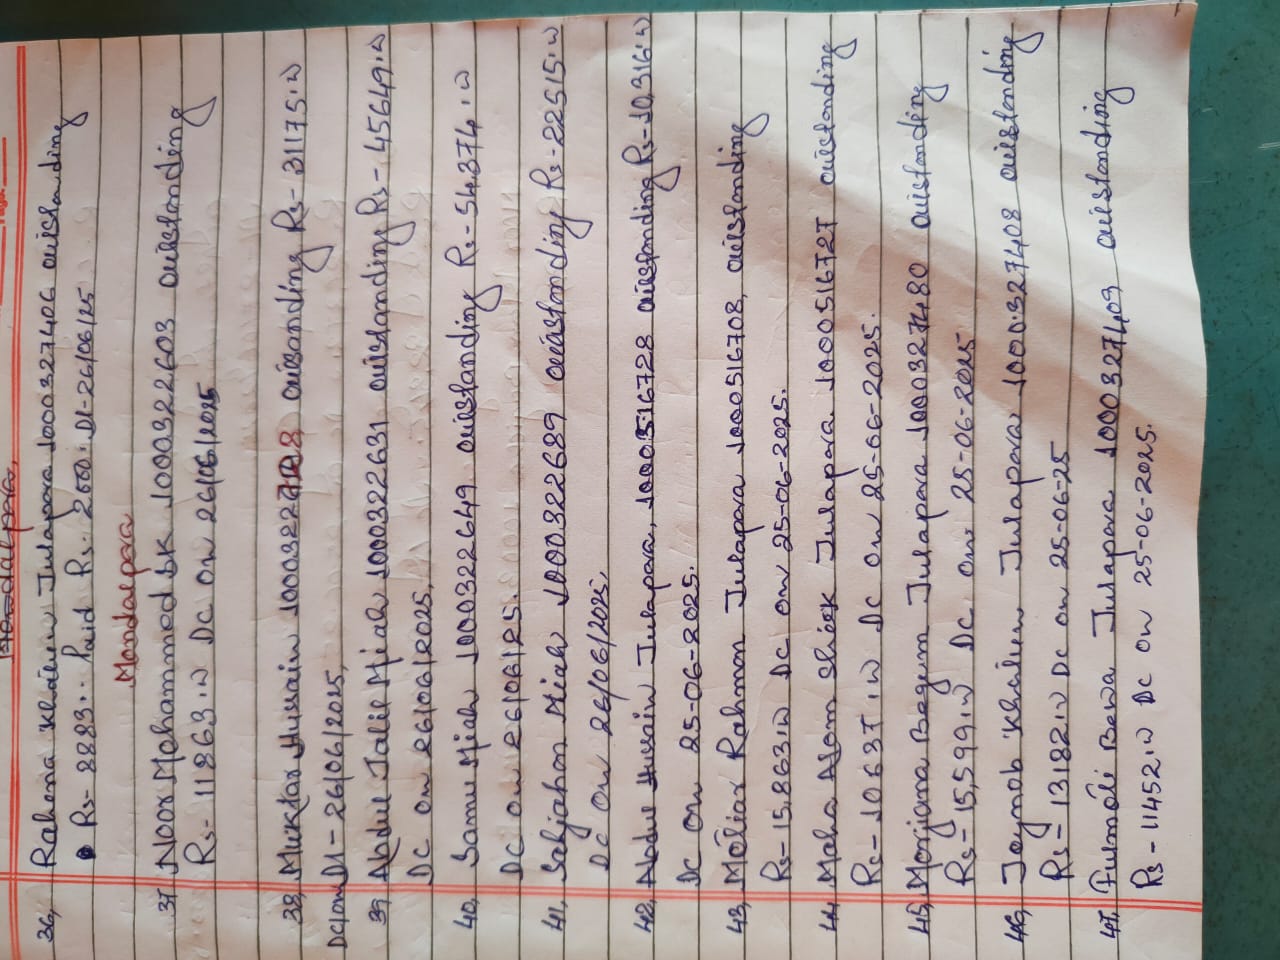 Mandalpara,
36, Rahena Khatun Julapara 1000327406 outstanding
Rs- 8883.. Paid Rs. 2000. Dt-26/06/25
Mondalpara
37 Noor Mohammed SK 100322603 outstanding
Rs- 11863.00 DC On 26/06/2025
38, Muktar Hussain outsonding Rs- 31175.00
DC(on) Dt- 26/06/2025,
39, Abdul Jalil Miah 100322631 outstanding Rs- 45649.00
DC On 26/06/2025,
40, Samu Miah 100322649 outstanding Rs- 54374.00
DC on 26/06/25.
41, Sahjahan Miah 100322689 outstanding Rs- 22515.00
DC On 26/06/2025.
42, Abdul Hussain Julapara, 100516728 outstanding Rs- 10,316.00
DC On 25-06-2025.
43, Motiar Rahman Julapara 100516708, outstanding
Rs- 15,863.00 DC on 25-06-2025.
44, Maha Alom Shiek Julapara 100516727 outstanding
Rs- 10637.00 DC On 25-06-2025.
45, Morjiana Begum Julapara 100327480 outstanding
Rs- 15,599.00 DC on 25-06-2025
46, Joynob Khatun Julapara 100327408 outstanding
Rs- 13182.00 DC on 25-06-25
47, Fulmati Bewa Julapara 1000327409 outstanding
Rs- 11452.00 DC on 25-06-2025.